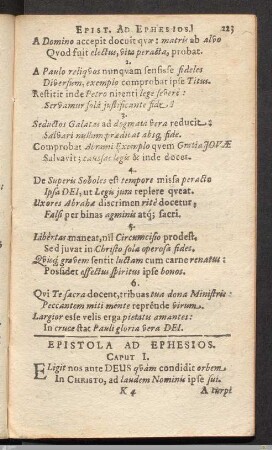 EPIST. AD EPHESIOS. 223
A Domino accepit docuit quæ: matris ab alvo
Quod fuit electus, vita peracta, probat.
2.
A Paulo reliquos nunquam sensisse fideles
Diversum, exemplo comprobat ipse Titus.
Restitit inde Petro nitenti lege severi:
Servamur solâ justificante fide.
3.
Seductos Galatas ad dogmata vera reducit:
Salvari nullum prædicat absq; fide.
Comprobat Abrami Exemplo quem Gratia JOVÆ
Salvavit; caussas legis & inde docet.
4.
De Superis Soboles est tempore missa peracto
Ipsa DEI, ut Legis jura replere queat.
Uxores Abrahæ discrimen ritè docetur,
Falsi per binas agminis atq; sacri.
5.
Libertas maneat, nil Circumcisio prodest,
Sed juvat in Christo sola operosa fides.
Quisq; gravem sentit luctam cum carne renatus:
Possidet effectus spiritus ipse bonos.
6.
Qui Te sacra docent, tribuas tua dona Ministris:
Peccantem miti mente reprende virum.
Largior esse velis erga pietatis amantes:
In cruce stat Pauli gloria vera DEI.
EPISTOLA AD EPHESIOS.
CAPUT I.
ELigit nos ante DEUS quàm condidit orbem
In CHRISTO, ad laudem Nominis ipse sui.
K 4 A turpi